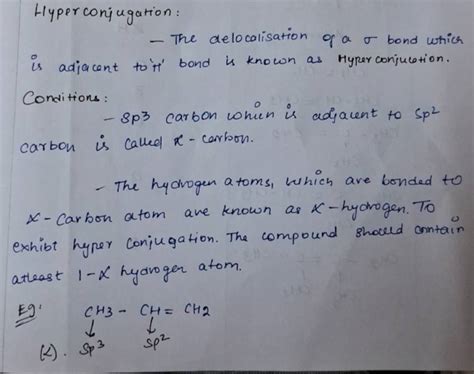 Hyperconjugation:
- The delocalisation of a σ bond which
is adjacent to 'π' bond is known as Hyperconjucation.
Conditions:
- Sp3 carbon which is adjacent to Sp2
carbon is called α-carbon.
- The hydrogen atoms, which are bonded to
α-Carbon atom are known as α-hydrogen. To
exhibit hyper conjugation. The compound should contain
atleast 1-α hydrogen atom.
Eg: CH3 - CH = CH2
↓ ↓
(α). Sp3 Sp2